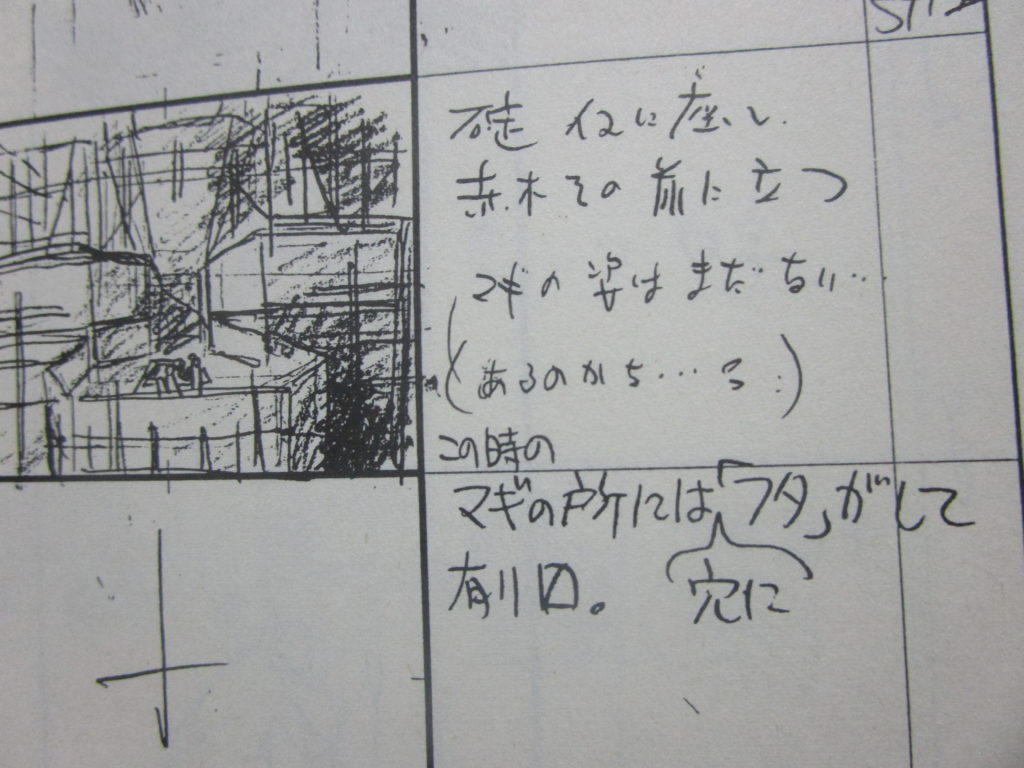 碇 イスに座し、
赤木その前に立つ
マギの姿はまだない…
(あるのかな…?)
この時の
マギの所には「フタ」がして
有り〼。 穴に